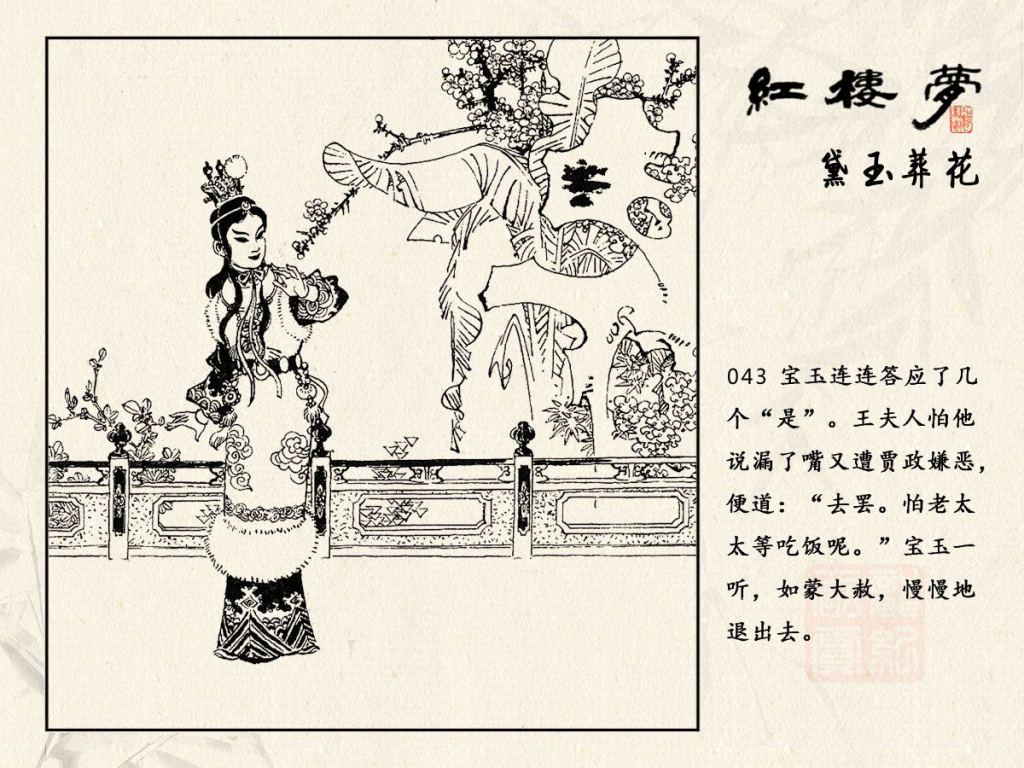 紅樓夢
黛玉葬花
043 宝玉连连答应了几
个“是”。王夫人怕他
说漏了嘴又遭贾政嫌恶，
便道：“去罢。怕老太
太等吃饭呢。”宝玉一
听，如蒙大赦，慢慢地
退出去。